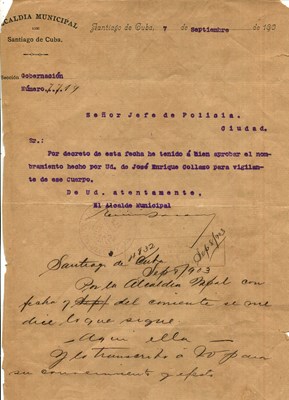 ALCALDIA MUNICIPAL
DE
Santiago de Cuba.
Santiago de Cuba, 7 de Septiembre de 190
Sección Gobernación
Número.
Señor Jefe de Policia.
Ciudad.
Sr.:
Por decreto de esta fecha ha tenido á bien aprobar el nom-
bramiento hecho por Ud. de José Enrique Collazo para vigilan-
te de ese Cuerpo.
De Ud. atentamente,
El Alcalde Municipal
Santiago de Cuba
Sep 8/903
Por la Alcaldia con
fecha 7 del corriente se me
dice lo que sigue
Aqui ella
Y lo transcribo á Vd para
su conocimiento y